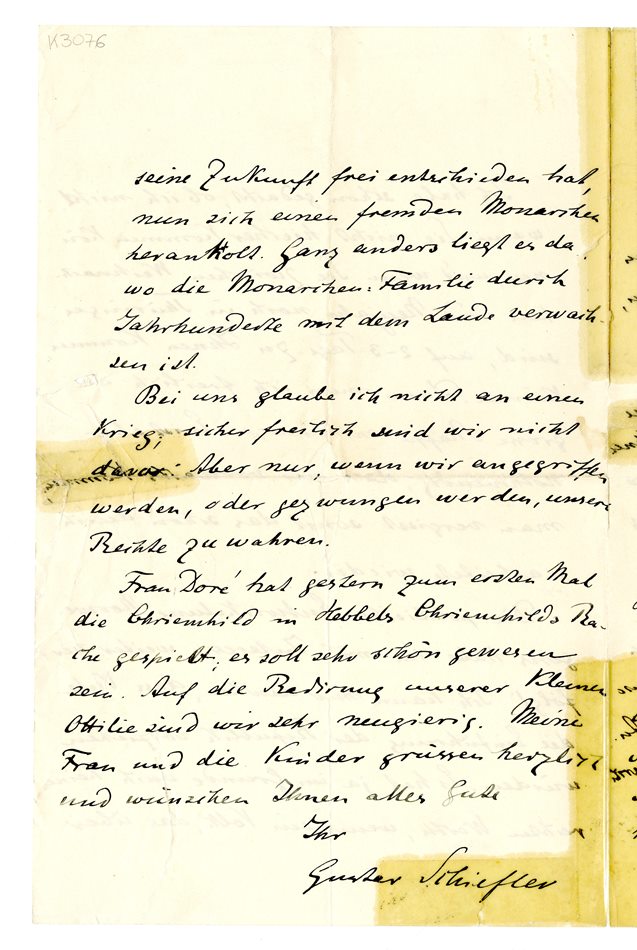 K3076
seine Zukunft frei entschieden hat,
nun sich einen fremden Monarchen
heranholt. Ganz anders liegt es da,
wo die Monarchen-Familie durch
Jahrhunderte mit dem Lande verwach-
sen ist.
Bei uns glaube ich nicht an einen
Krieg; sicher freilich sind wir nicht
davor. Aber nur, wenn wir angegriffen
werden, oder gezwungen werden, unsere
Rechte zu wahren.
Frau Doré hat gestern zum ersten Mal
die Chriemhild in Hebbels Chriemhilds Ra-
che gespielt; es soll sehr schön gewesen
sein. Auf die Radirung unserer kleinen
Ottilie sind wir sehr neugierig. Meine
Frau und die Kinder grüssen herzlich
und wünschen Ihnen alles Gute
Ihr
Gustav Schiefler